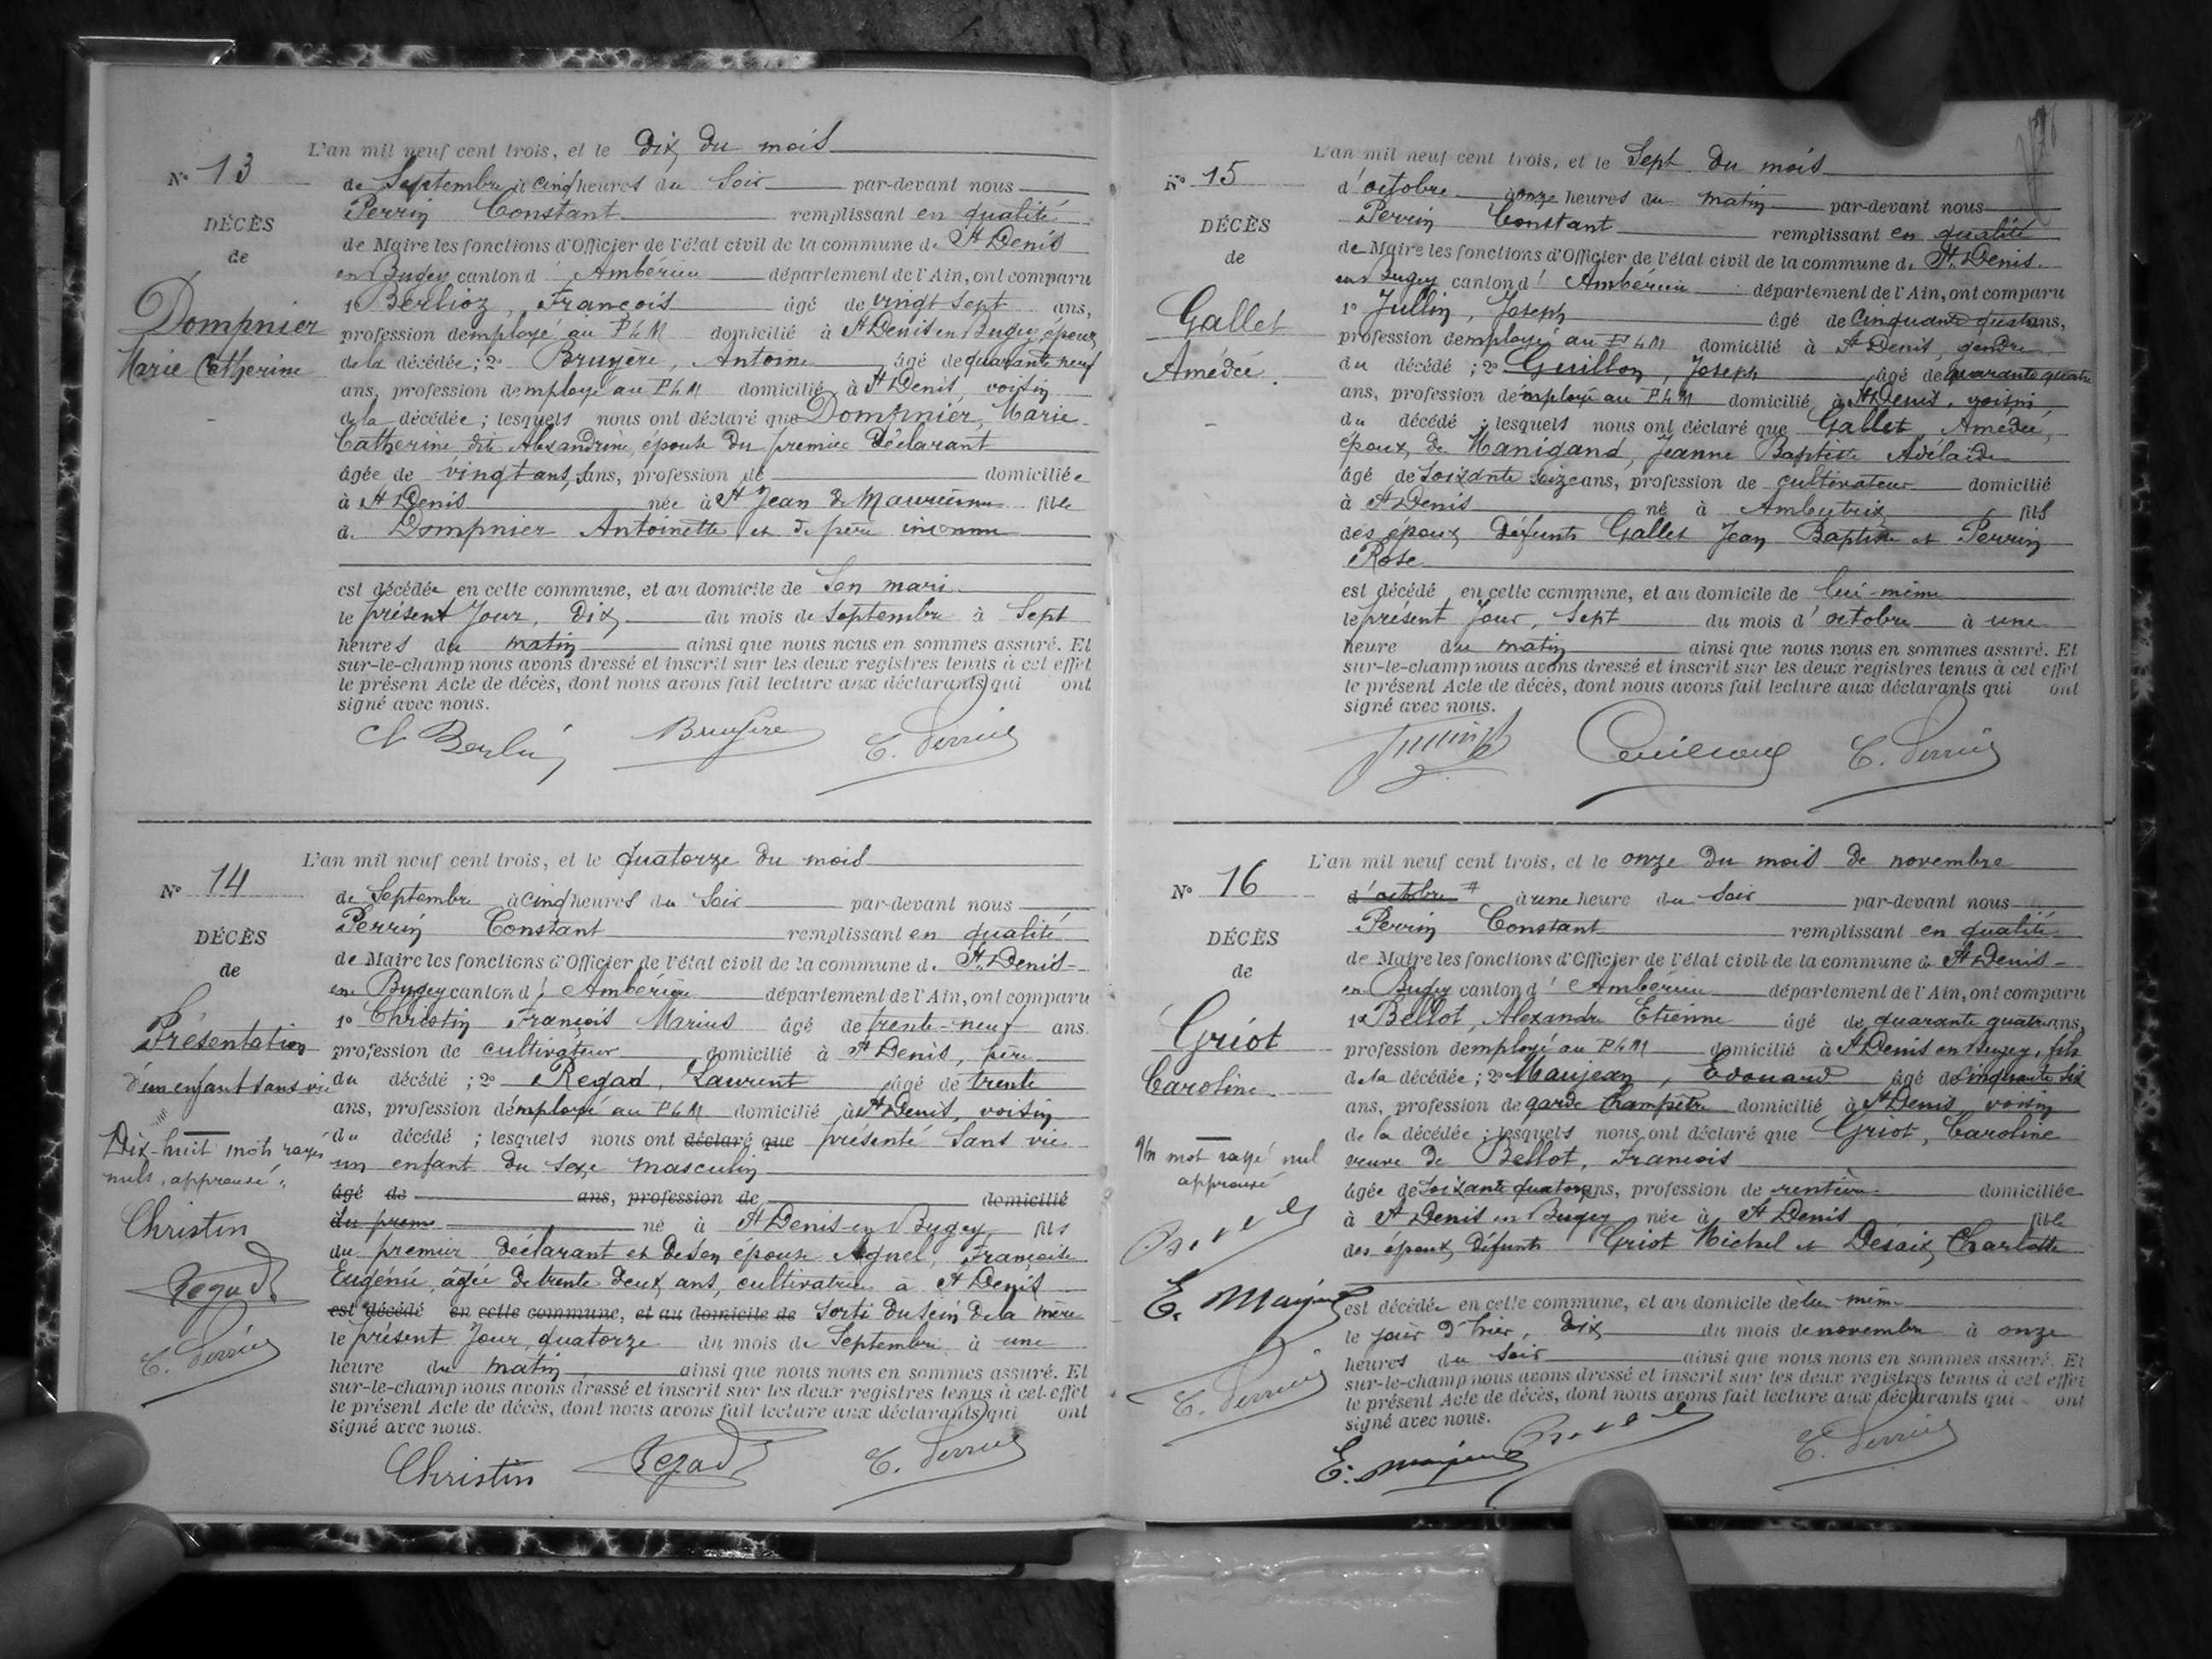 L'an mil neuf cent trois, et le Dix du mois
N° 13
de Septembre à cinq heures du Soir par-devant nous
Perrin Constant remplissant en qualité
DÉCÈS
de Maire les fonctions d'Officier de l'état civil de la commune de St Denis
de
en Bugey canton d' Ambérieu département de l'Ain, ont comparu
1° Berlioz, François âgé de vingt sept ans,
Dompnier
profession d'employé au PLM domicilié à St Denis en Bugey, époux
Marie Catherine
de la décédée ; 2° Bruyere, Antoine âgé de quarante neuf
ans, profession d'employé au PLM domicilié à St Denis, voisin
de la décédée ; lesquels nous ont déclaré que Dompnier, Marie
Catherine, dite Alexandrine, épouse du premier déclarant
âgée de vingt ans, ans, profession de domiciliée
à St Denis née à St Jean de Maurienne fille
de Dompnier Antoinette et de père inconnu
est décédée en cette commune, et au domicile de Son mari
le présent Jour, Dix du mois de Septembre à Sept
heures du matin ainsi que nous nous en sommes assuré. Et
sur-le-champ nous avons dressé et inscrit sur les deux registres tenus à cet effet
le présent Acte de décès, dont nous avons fait lecture aux déclarants qui ont
signé avec nous.
Bruyere C. Perrin
L'an mil neuf cent trois, et le quatorze du mois
N° 14
de Septembre à cinq heures du Soir par-devant nous
Perrin Constant remplissant en qualité
DÉCÈS
de Maire les fonctions d'Officier de l'état civil de la commune de St Denis
de
en Bugey canton d' Ambérieu département de l'Ain, ont comparu
1° Christin François Marius âgé de trente-neuf ans.
Présentation
profession de cultivateur domicilié à St Denis, père
d'un enfant sans vie
du décédé ; 2° Regad, Laurent âgé de trente
ans, profession d'employé au PLM domicilié à St Denis, voisin
du décédé ; lesquels nous ont déclaré que présenté Sans vie
Dix-huit mots rayés
nuls, approuvé.
un enfant du sexe masculin
âgé de ans, profession de domicilié
Christin
du premi né à St Denis en Bugey fils
du premier déclarant et de son épouse Agnel, Françoise
Regad
Eugénie, âgée de trente deux ans, cultivatrice à St Denis
est décédé en cette commune, et au domicile de Sorti du sein de la mère
C. Perrin
le présent Jour, quatorze du mois de Septembre à une
heure du matin ainsi que nous nous en sommes assuré. Et
sur-le-champ nous avons dressé et inscrit sur les deux registres tenus à cet effet
le présent Acte de décès, dont nous avons fait lecture aux déclarants qui ont
signé avec nous.
Christin Regad C. Perrin
L'an mil neuf cent trois, et le Sept du mois
N° 15
d'octobre à onze heures du matin par-devant nous
Perrin Constant remplissant en qualité
DÉCÈS
de Maire les fonctions d'Officier de l'état civil de la commune de St Denis
de
en Bugey canton d' Ambérieu département de l'Ain, ont comparu
1° Jullin, Joseph âgé de cinquante quatre ans,
Gallet
profession d'employé au PLM domicilié à St Denis, gendre
Amédée.
du décédé ; 2° Guillon, Joseph âgé de quarante quatre
ans, profession d'employé au PLM domicilié à St Denis, voisin
du décédé ; lesquels nous ont déclaré que Gallet, Amédée,
époux de Manigand, Jeanne Baptiste Adélaïde
âgé de soixante seize ans, profession de cultivateur domicilié
à St Denis né à Ambutrix fils
des époux défunts Gallet Jean Baptiste et Perrin
Rose
est décédé en cette commune, et au domicile de lui-même
le présent Jour, Sept du mois d'octobre à une
heure du matin ainsi que nous nous en sommes assuré. Et
sur-le-champ nous avons dressé et inscrit sur les deux registres tenus à cet effet
le présent Acte de décès, dont nous avons fait lecture aux déclarants qui ont
signé avec nous.
C. Perrin
L'an mil neuf cent trois, et le onze du mois de novembre
N° 16
d'octobre # à une heure du Soir par-devant nous
Perrin Constant remplissant en qualité
DÉCÈS
de Maire les fonctions d'Officier de l'état civil de la commune de St Denis
de
en Bugey canton d' Ambérieu département de l'Ain, ont comparu
1° Bellot, Alexandre Etienne âgé de quarante quatre ans,
Griot
profession d'employé au PLM domicilié à St Denis en Bugey, fils
Caroline
de la décédée ; 2° Maujean, Edouard âgé de cinquante six
ans, profession de garde champêtre domicilié à St Denis, voisin
de la décédée ; lesquels nous ont déclaré que Griot, Caroline
Un mot rayé nul
approuvé
veuve de Bellot, François
âgée de soixante quatorze ans, profession de rentière domiciliée
à St Denis en Bugey née à St Denis fille
des époux défunts Griot Michel et Desaix, Charlotte
est décédée en cette commune, et au domicile d'elle-même
le jour d'hier, dix du mois de novembre à onze
heures du Soir ainsi que nous nous en sommes assuré. Et
C. Perrin
sur-le-champ nous avons dressé et inscrit sur les deux registres tenus à cet effet
le présent Acte de décès, dont nous avons fait lecture aux déclarants qui ont
signé avec nous.
C. Perrin